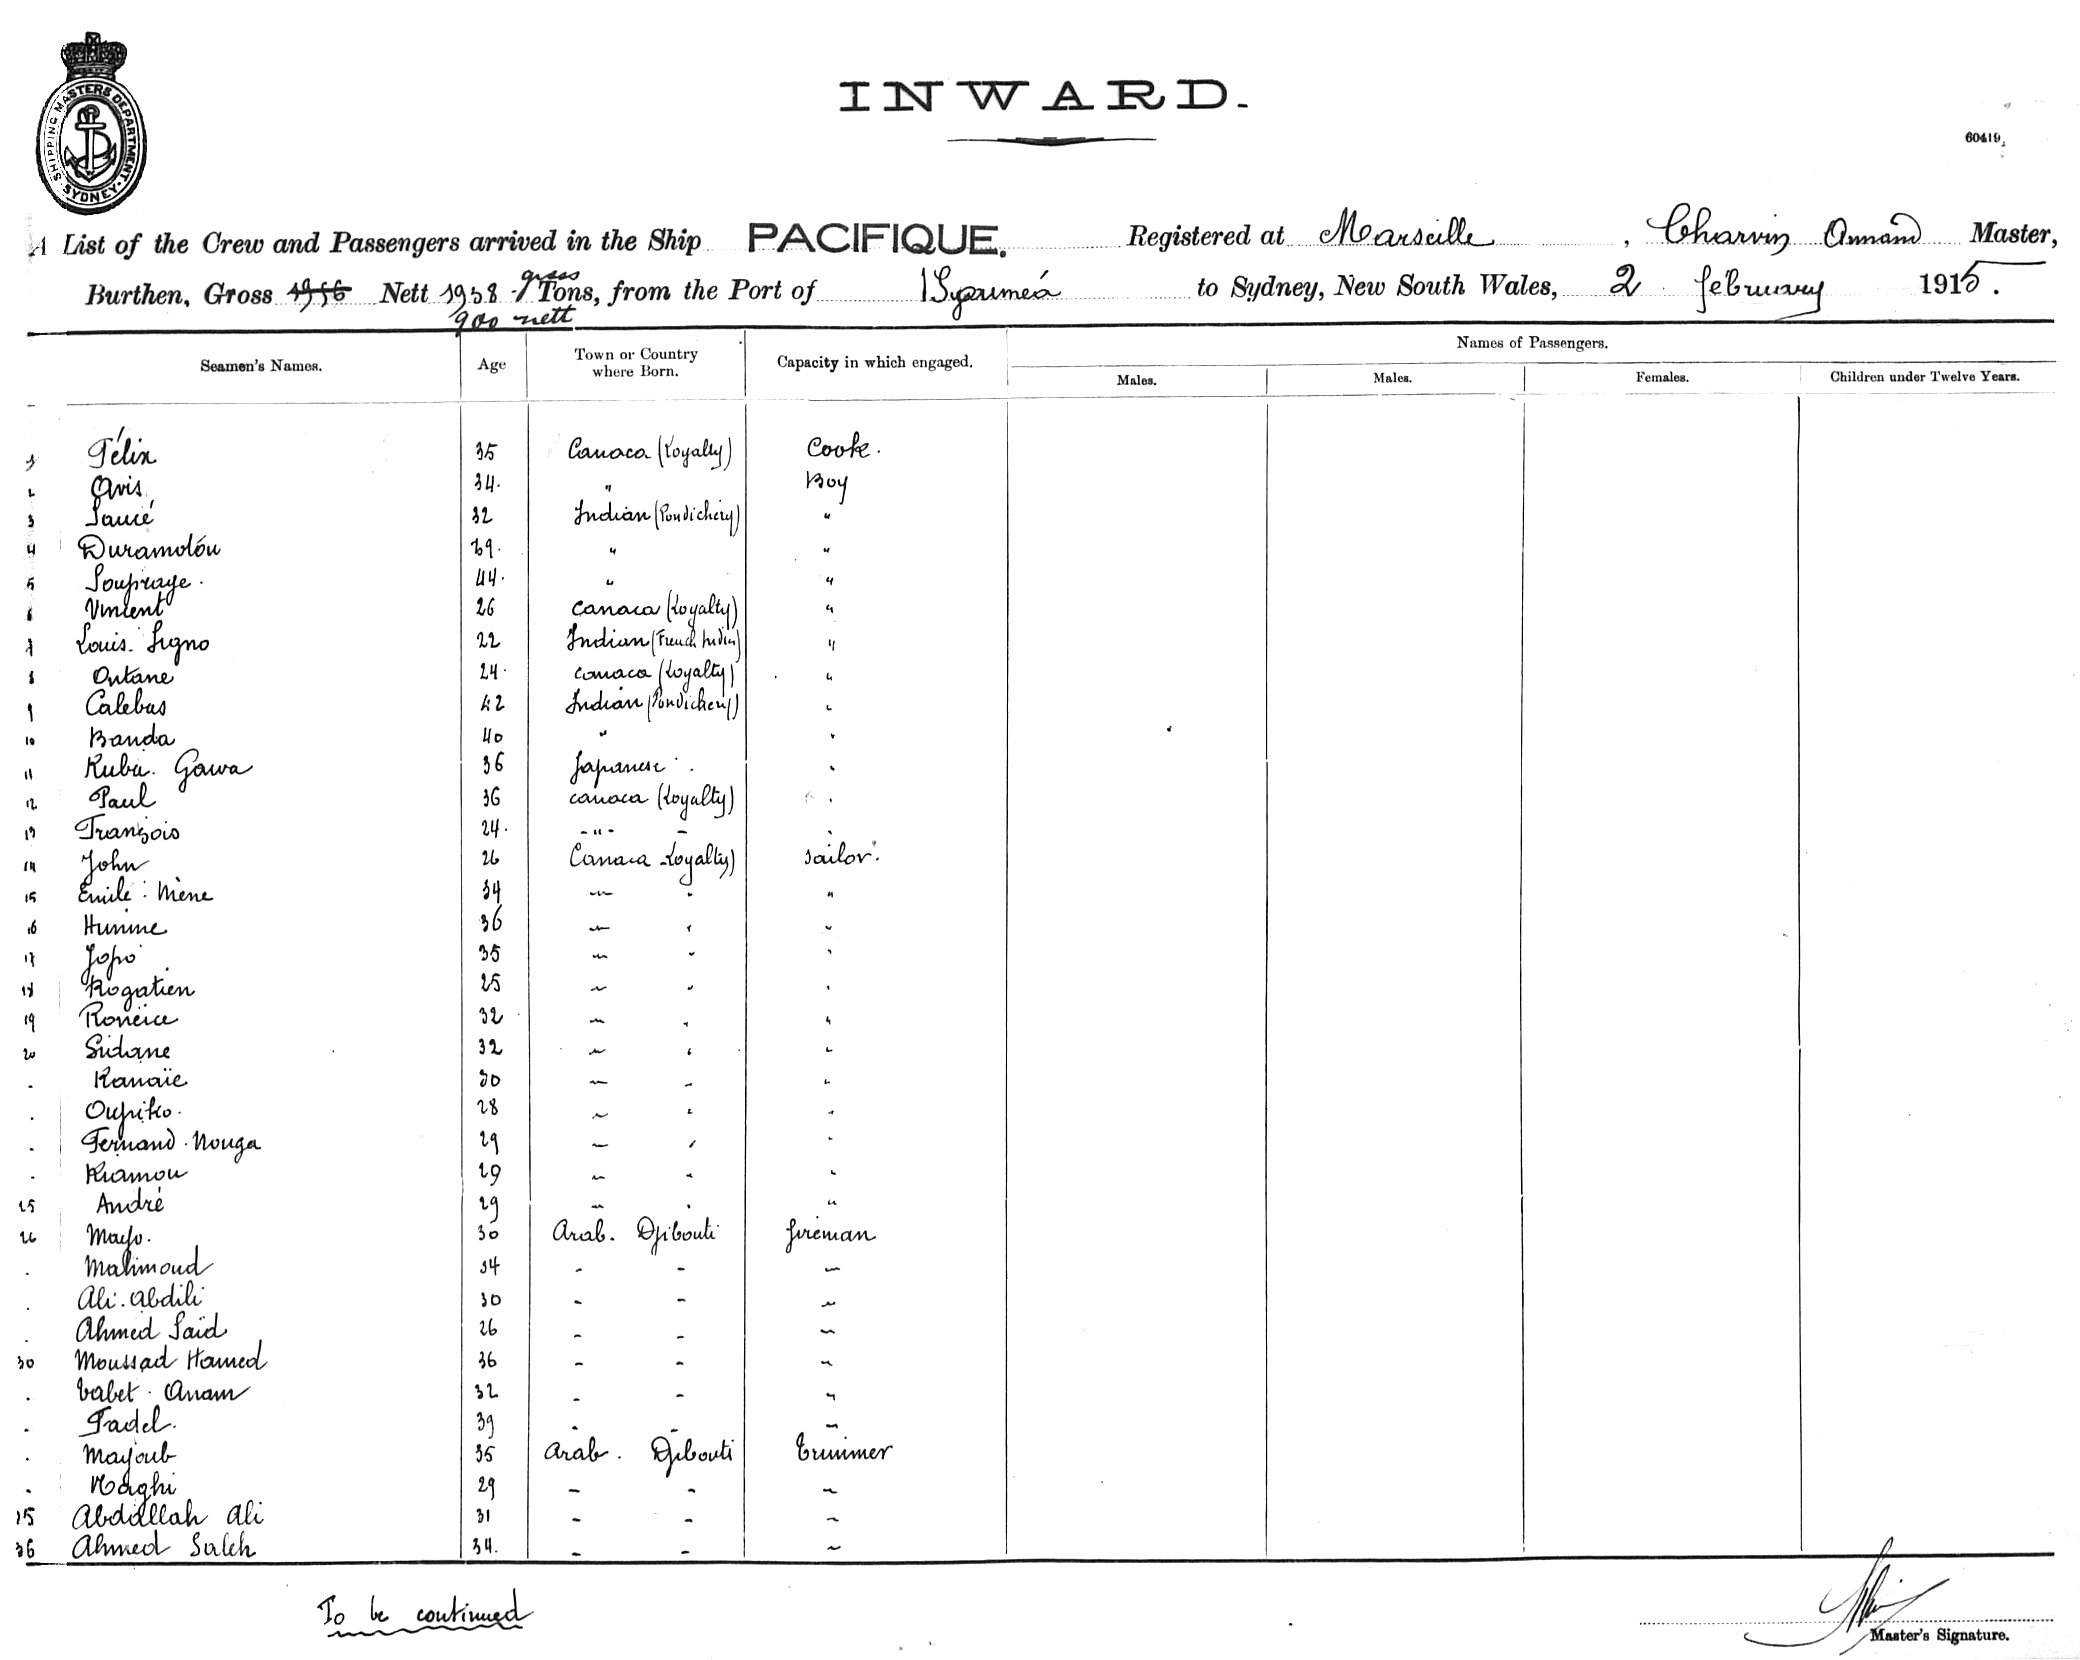 SHIPPING MASTERS DEPARTMENT SYDNEY
INWARD.
60419
A List of the Crew and Passengers arrived in the Ship PACIFIQUE. Registered at Marseille, Charvin Armand Master,
Burthen, Gross 1956 Nett 1938 gross Tons, from the Port of Nouméa to Sydney, New South Wales, 2 february 1915.
900 nett
Names of Passengers.
Seamen's Names. Age Town or Country where Born. Capacity in which engaged. Males. Males. Females. Children under Twelve Years.
1 Félix 35 Canaca (Loyalty) Cook.
2 Avis 34. " Boy
3 32 Indian (Pondichery) "
4 Duramolou 39. " "
5 Soupraye. 44. " "
6 Vincent 26 canaca (Loyalty) "
7 Louis Ligno 22 Indian (French Indies) "
8 Ontane 24. canaca (Loyalty) "
9 Calebas 42 Indian (Pondichery) "
10 Banda 40 " "
11 Kuba. Gawa 36 Japanese. "
12 Paul 36 canaca (Loyalty) "
13 François 24. -"- - "
14 John 26 Canaca Loyalty) sailor.
15 Emile Mène 34 " " "
16 Hunine 36 " " "
17 Jopo 35 " " "
18 Rogatien 25 " " "
19 Roneice 32 " " "
20 Sidane 32 " " "
. Kanaïe 30 " " "
. Oupiko. 28 " " "
. Fernand. Nouga 29 " " "
. Kiamou 29 " " "
25 André 29 " " "
26 30 Arab. Djibouti fireman
. Mahmoud 34 - - "
. Ali. Abdili 30 - - "
. Ahmed Saïd 26 - - "
30 Moussad Hamed 36 - - "
. Tabet. Anam 32 - - "
. Fadel. 39 - - "
. Mayoub 35 Arab. Djibouti Trimmer
. Naghi 29 - - "
35 Abdallah Ali 31 - - "
36 Ahmed Saleh 34. - - "
To be continued
Master's Signature.